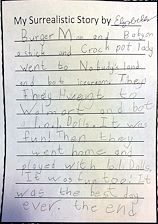 My Surrealistic Story by Elizabeth
Burger Man and Batman
a stick and Crock pot lady
went to Nobodys land
and bot icecream. Then
they went to
Walmart and bot
Lil Dolls. It was
fun! Then they
went home and
played with Lil Dolls.
It was fun too! It
was the best day
ever. the end